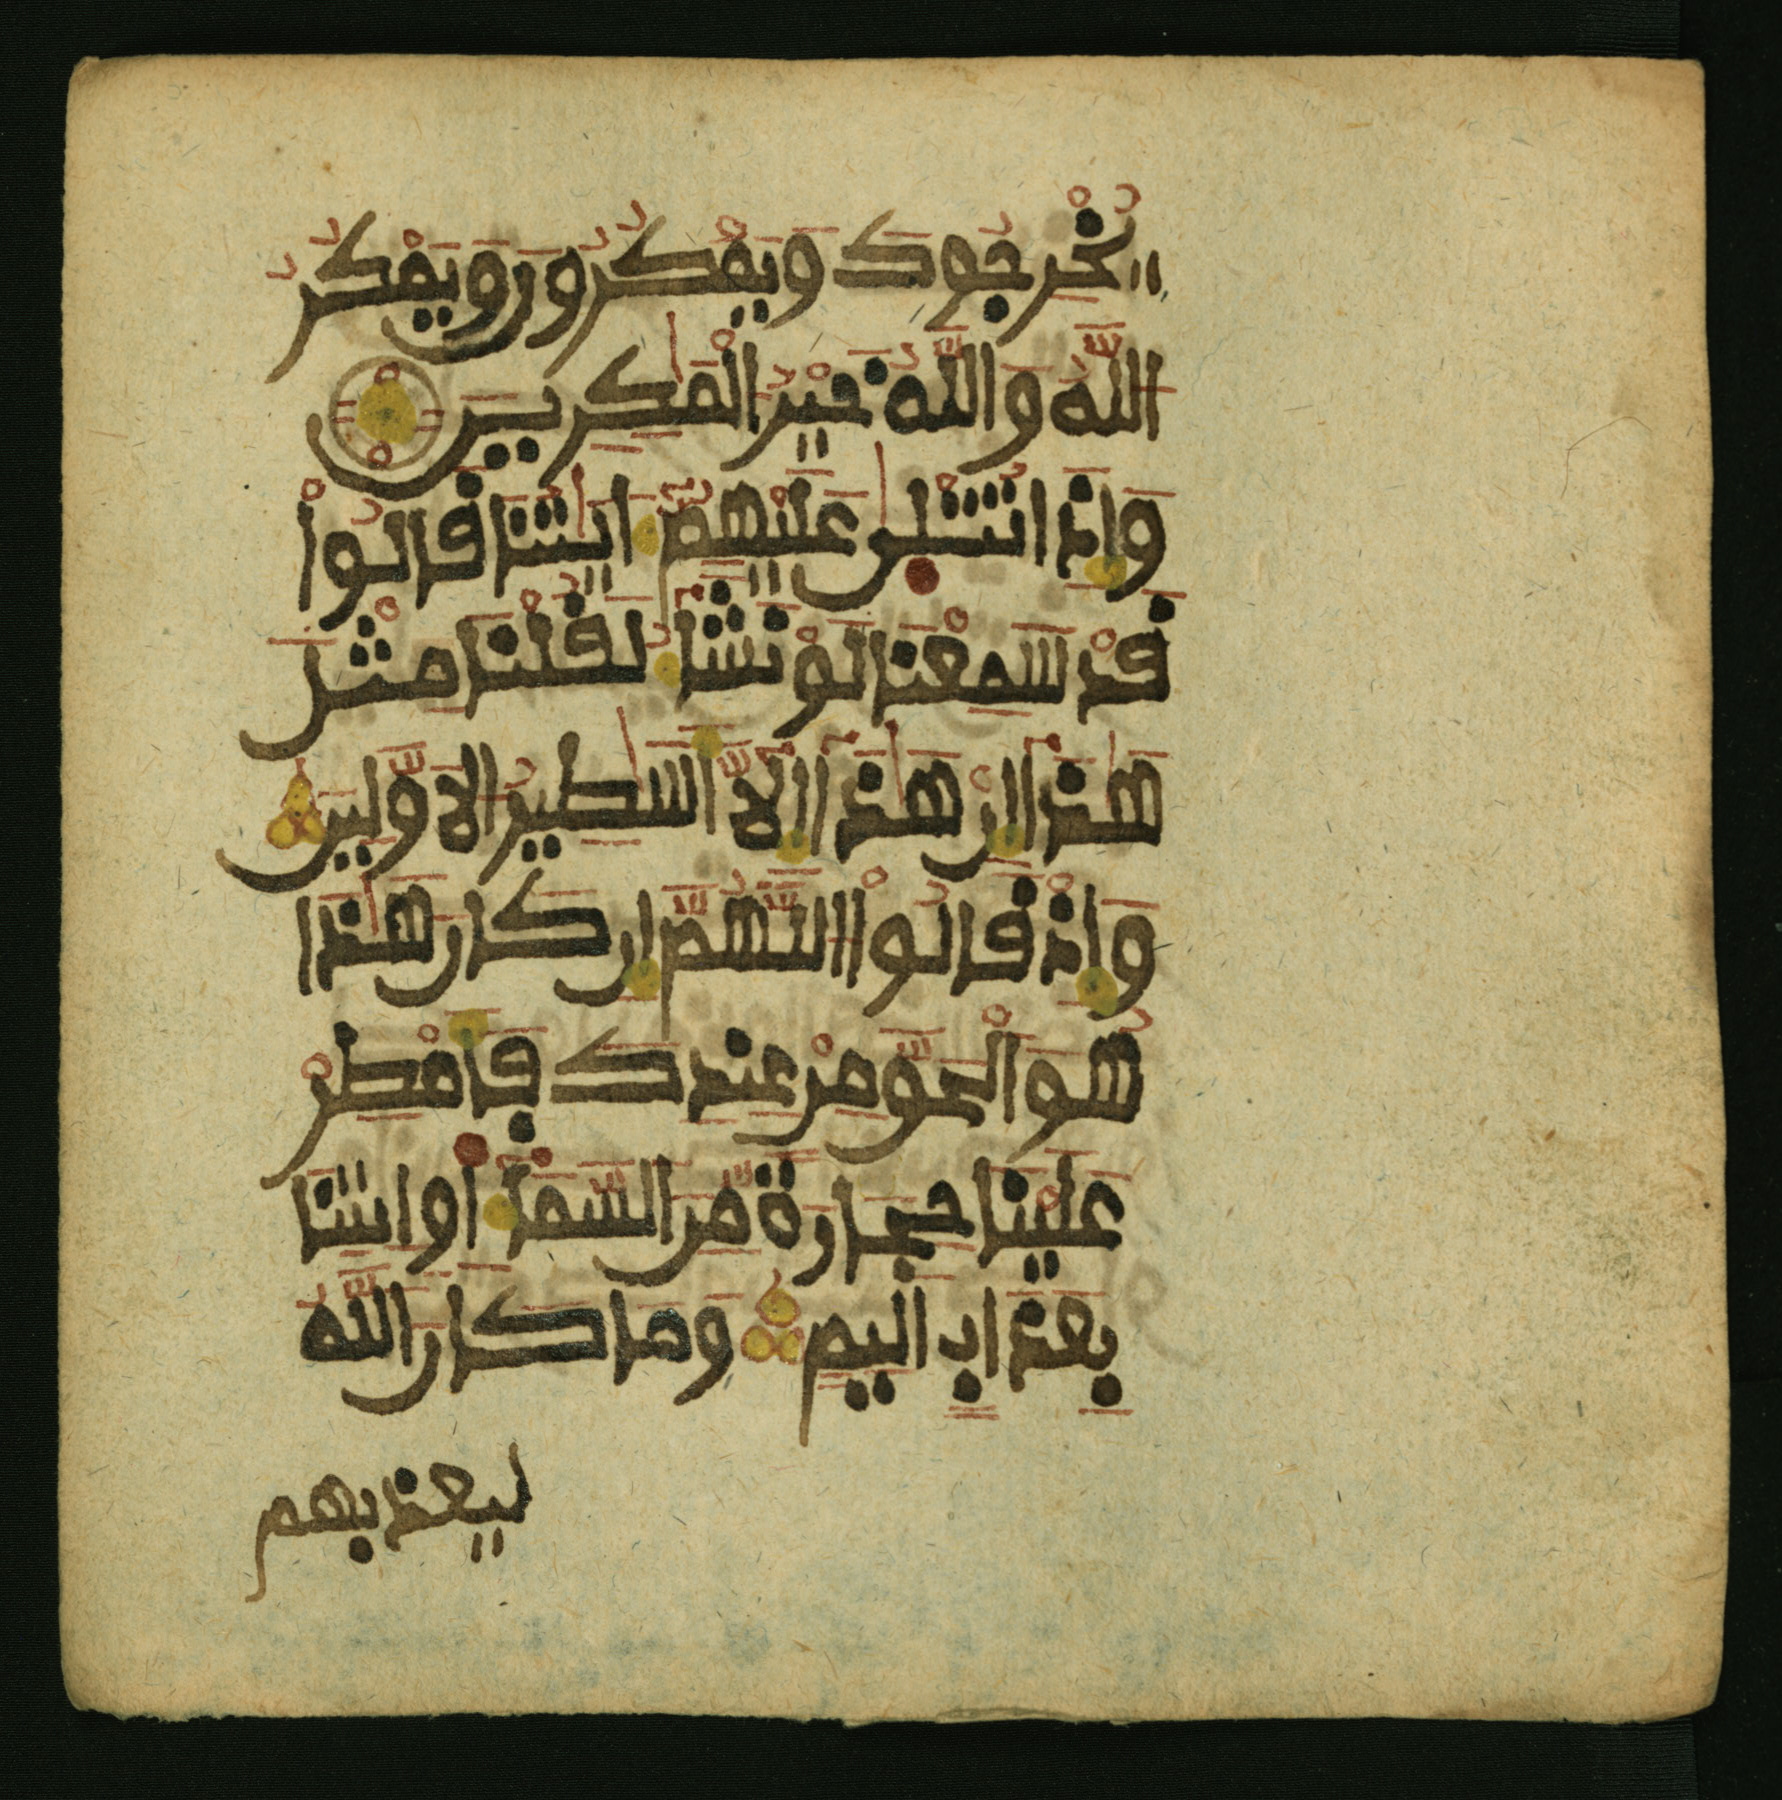 يُخْرِجُوكَ وَيَمْكُرُونَ وَيَمْكُرُ
اللَّهُ وَاللَّهُ خَيْرُ الْمَٰكِرِينَ
وَإِذَا تُتْلَىٰ عَلَيْهِمُۥٓ ءَايَٰتُنَا قَالُواْ
قَدْ سَمِعْنَا لَوْ نَشَآءُ لَقُلْنَا مِثْلَ
هَٰذَآ إِنْ هَٰذَآ إِلَّآ أَسَٰطِيرُ الَاوَّلِينَ
وَإِذْ قَالُواْ اللَّهُمَّ إِن كَانَ هَٰذَا
هُوَ الْحَقَّ مِنْ عِندِكَ فَأَمْطِرْ
عَلَيْنَا حِجَارَةً مِّنَ السَّمَآءِ أَوِ ايتِنَا
بِعَذَابٍ أَلِيمٍ وَمَا كَانَ اللَّهُ
ليعذبهم